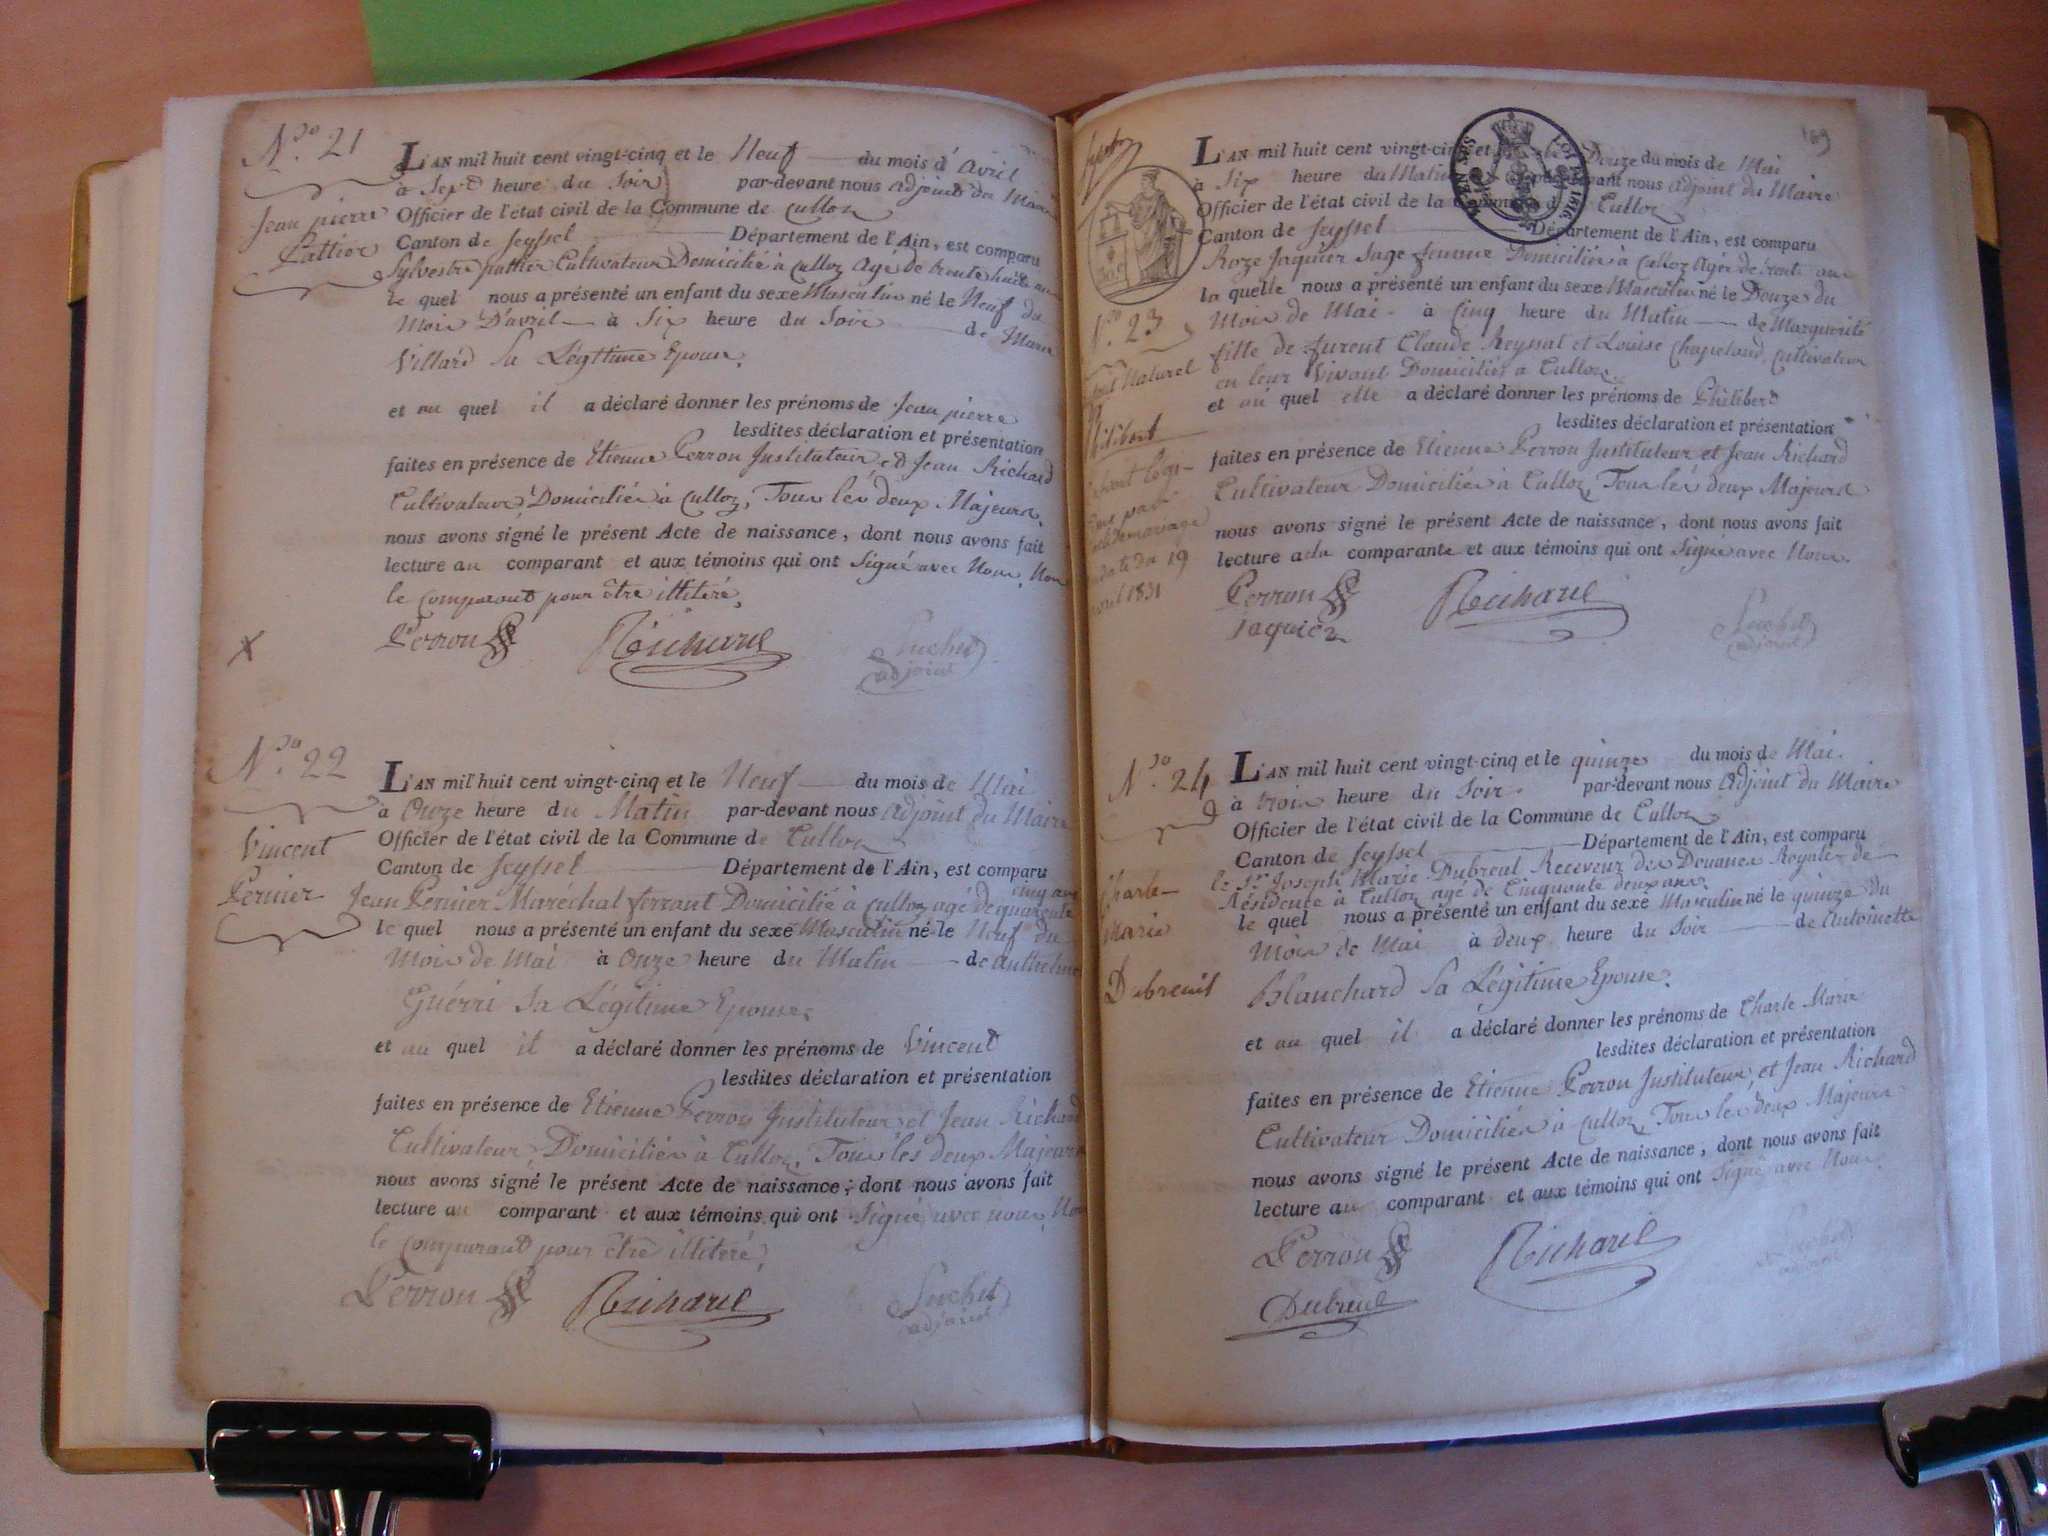 N.ro 21
Jean pierre
Pattier
L'AN mil huit cent vingt-cinq et le Neuf du mois d'avril
à Sept heure du Soir par-devant nous adjoint du Maire
Officier de l'état civil de la Commune de Culloz
Canton de Seyssel Département de l'Ain, est comparu
Sylvestre pattier Cultivateur Domicilié à Culloz Agé de trente huit ans
le quel nous a présenté un enfant du sexe Masculin né le Neuf du
Mois D'avril à Six heure du Soir de Marie
Villard Sa Légitime Epouse.
et au quel il a déclaré donner les prénoms de Jean pierre
lesdites déclaration et présentation
faites en présence de Etienne Perron Instituteur et Jean Richard
Cultivateur Domiciliés à Culloz, Tous les deux Majeurs.
nous avons signé le présent Acte de naissance, dont nous avons fait
lecture au comparant et aux témoins qui ont Signé avec Nous, Non
le Comparant pour être illitéré.
Perron Richard Suchet
adjoint
X
N.ro 22
Vincent
Pernier
L'AN mil huit cent vingt-cinq et le Neuf du mois de Mai
à Onze heure du Matin par-devant nous adjoint du Maire
Officier de l'état civil de la Commune de Culloz
Canton de Seyssel Département de l'Ain, est comparu
Jean Pernier Maréchal ferrant Domicilié à Culloz agé de quarente cinq ans
le quel nous a présenté un enfant du sexe Masculin né le Neuf du
Mois de Mai à Onze heure du Matin de Anthelme
Guérri Sa Légitime Epouse.
et au quel il a déclaré donner les prénoms de Vincent
lesdites déclaration et présentation
faites en présence de Etienne Perron Instituteur et Jean Richard
Cultivateur Domiciliés à Culloz, Tous les deux Majeurs
nous avons signé le présent Acte de naissance, dont nous avons fait
lecture au comparant et aux témoins qui ont Signé avec nous, Non
le Comparant pour être illitéré,
Perron Richard Suchet
adjoint
169
LOI DE 1816
L'AN mil huit cent vingt-cinq et le Douze du mois de Mai
à Six heure du Matin par-devant nous adjoint du Maire
Officier de l'état civil de la Commune de Culloz
Canton de Seyssel Département de l'Ain, est comparu
Roze Jaquier Sage femme Domiciliée à Culloz Agée de trente ans
la quelle nous a présenté un enfant du sexe Masculin né le Douze du
Mois de Mai à Cinq heure du Matin de Marguerite
fille de furent Claude Reyssat et Louise Chapeland, Cultivateur
en leur Vivant Domiciliés à Culloz
et au quel elle a déclaré donner les prénoms de Philibert
lesdites déclaration et présentation
faites en présence de Etienne Perron Instituteur et Jean Richard
Cultivateur Domiciliés à Culloz, Tous les deux Majeurs
nous avons signé le présent Acte de naissance, dont nous avons fait
lecture a la comparante et aux témoins qui ont Signé avec Nous.
Perron Richard Suchet
Jaquier adjoint
N.ro 23
Naturel
Philibert
mariage
date du 19
avril 1831
N.ro 24
Charle
Marie
Dubreuil
L'AN mil huit cent vingt-cinq et le quinze du mois de Mai.
à trois heure du Soir. par-devant nous adjoint du Maire
Officier de l'état civil de la Commune de Culloz
Canton de Seyssel Département de l'Ain, est comparu
le Sr. Joseph Marie Dubreul Receveur des Douanes Royales de
Résidence à Culloz agé de Cinquante deux ans.
le quel nous a présenté un enfant du sexe Masculin né le quinze du
Mois de Mai à deux heure du Soir de Antoinette
Blanchard Sa Légitime Epouse.
et au quel il a déclaré donner les prénoms de Charle Marie
lesdites déclaration et présentation
faites en présence de Etienne Perron Instituteur, et Jean Richard
Cultivateur Domiciliés à Culloz, Tous les deux Majeurs
nous avons signé le présent Acte de naissance, dont nous avons fait
lecture au comparant et aux témoins qui ont Signé avec Nous
Perron Richard Suchet
Dubreul